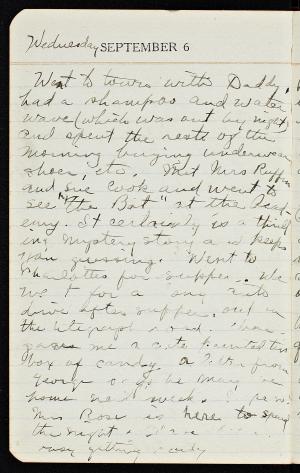 Wednesday SEPTEMBER 6
Went to town with Daddy,
had a shampoo and water
wave (which was out by night)
and spent the rest of the
morning buying underwear
shoes, etc. Met Mrs
and Sue Cook and went to
see "The Bat" at the Acad-
emy. It certainly is a thrill-
ing mystery story and keeps
you guessing. Went to
Charlottes for supper. We
went for a long auto
drive after supper, out on
the telegraph road.
gave me a cute painted tin
box of candy, a letter from
George says he may be
home next week.
Mrs Bose is here to spend
the night
busy getting ready